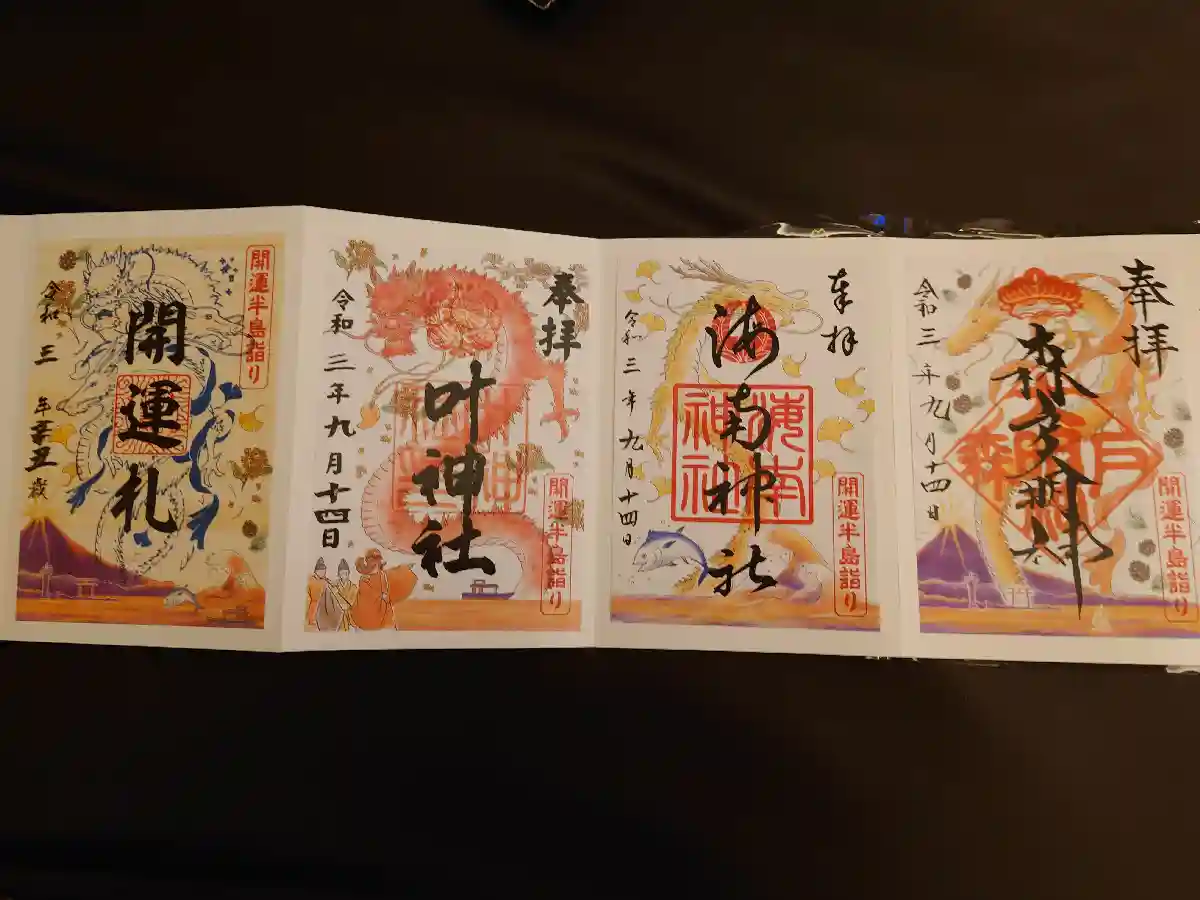 開運半島詣り
開運札
令和 三 年辛丑歳
奉拝
開運半島詣り
叶神社
令和 三年九月十四日
奉拝
開運半島詣り
海南神社
海南
神社
令和三年九月十四日
奉拝
開運半島詣り
森戸大明神
令和三年九月十四日